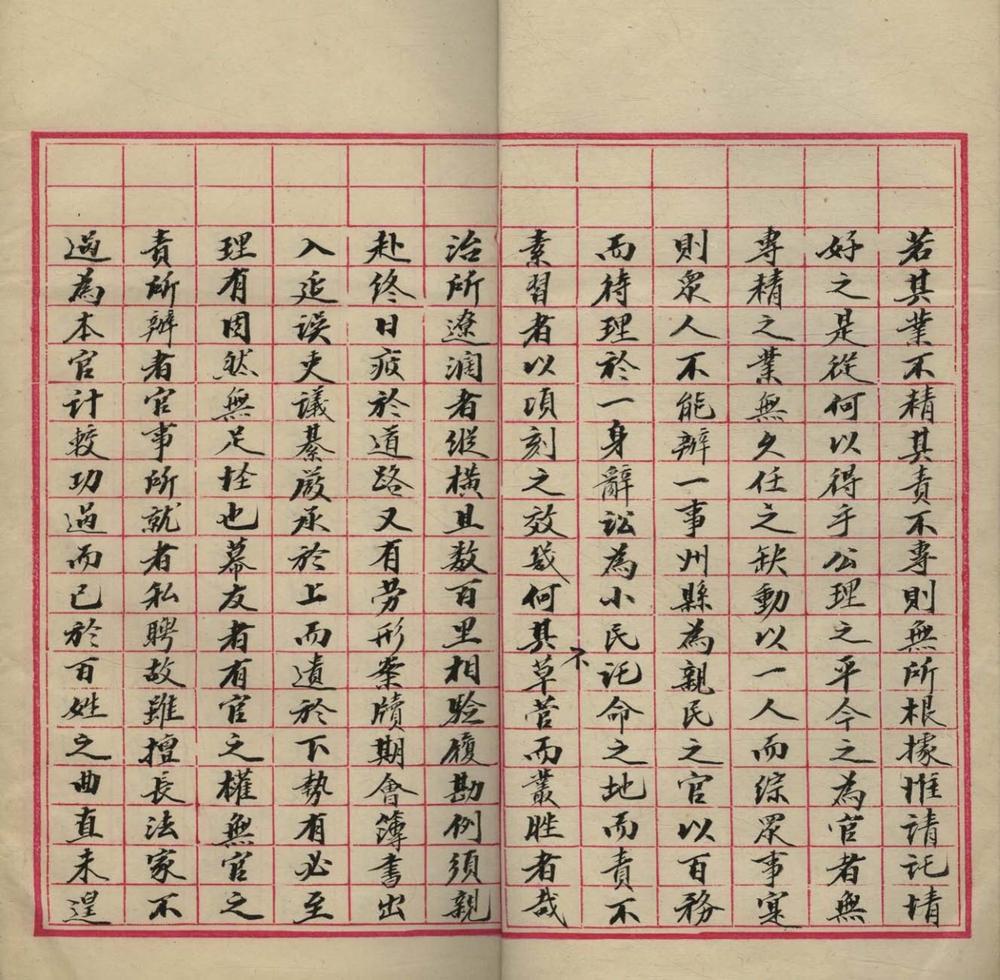 若其業不精其責不專則無所根據惟請託情
好之是從何以得乎公理之平今之為官者無
專精之業無久任之缺動以一人而綜眾事寔
則眾人不能辦一事州縣為親民之官以百務
而待理於一身辭訟為小民託命之地而責不
素習者以頃刻之效幾何其不草菅而叢脞者哉
治所遼濶者縱橫且数百里相驗履勘例須親
赴終日疲於道路又有勞形案牘期會簿書出
入延误吏議綦嚴承於上而遺於下勢有必至
理有固然無足怪也幕友者有官之權無官之
責所辦者官事所就者私聘故雖擅長法家不
過為本官計較功過而已於百姓之曲直未遑